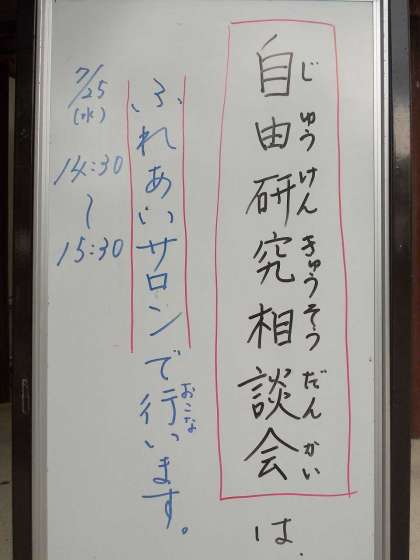 自由研究相談会は、
じゆうけんきゅうそうだんかい
ふれあいサロンで行います。
おこな
7/25
(水)
14:30
〜
15:30